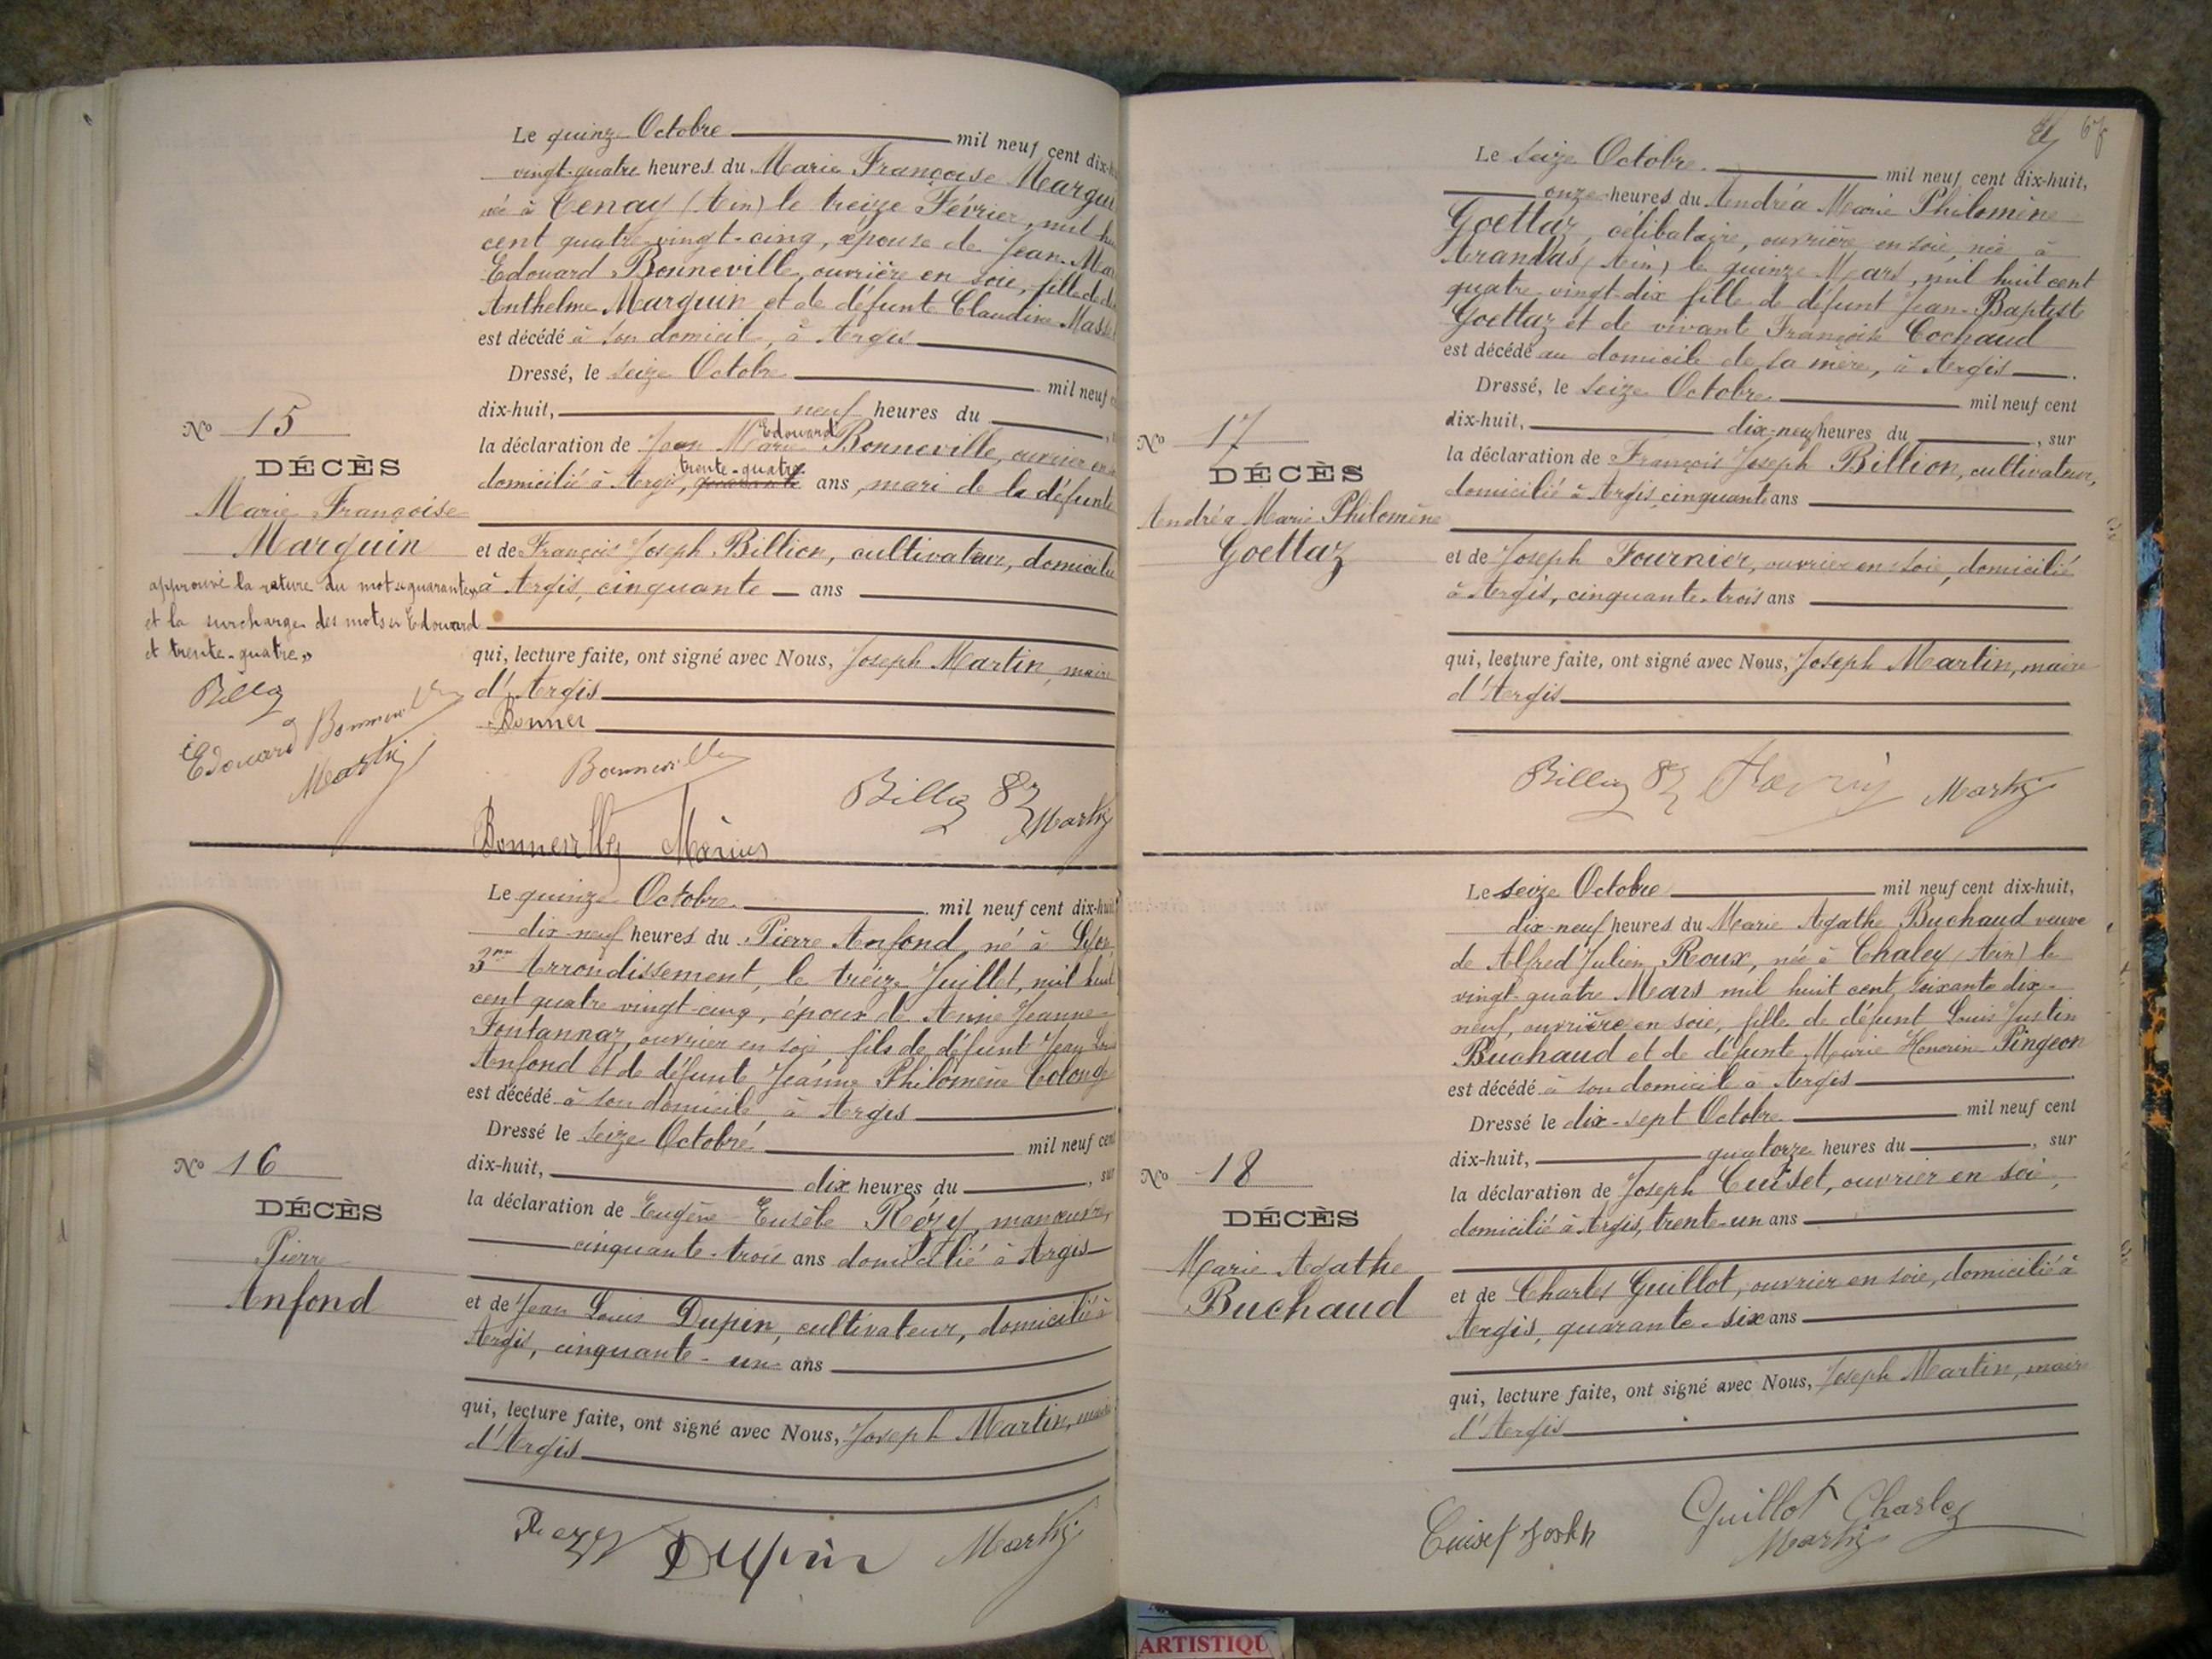 Le quinze Octobre mil neuf cent dix-h
vingt-quatre heures du Marie Françoise Marguin
née à Tenay (Ain) le treize Février, mil hu
cent quatre-vingt-cinq, épouse de Jean-Ma
Edouard Bonneville, ouvrière en soie, fille de d
Anthelme Marguin et de défunte Claudine Mass
est décédé à son domicile, à Argis
Dressé, le seize Octobre mil neuf c
dix-huit, neuf heures du
Edouard
la déclaration de Jean Marie Bonneville, ouvrier en
trente-quatre
domicilié à Argis, quarante ans, mari de la défunte
et de François Joseph Billion, cultivateur, domicilié
à Argis, cinquante ans
qui, lecture faite, ont signé avec Nous, Joseph Martin, maire
d'Argis
Bonner
No 15
DÉCÈS
Marie Françoise
Marguin
approuvé la rature du mot « quarante »
et la surcharge des mots « Edouard
et trente-quatre »
Edouard Bonneville
Martin
Bonneville
Martin
Bonneville Marius
Le quinze Octobre mil neuf cent dix-huit
dix-neuf heures du Pierre Anfond, né à Lyon
3me Arrondissement, le treize Juillet, mil huit
cent quatre vingt-cinq, époux de Annie Jeanne
Fontannaz, ouvrier en soie fils de défunt Jean Louis
Anfond et de défunte Jeanne Philomène Colong
est décédé à son domicile à Argis
Dressé le seize Octobre mil neuf cent
dix-huit, dix heures du , sur
la déclaration de Eugène Eusèbe Rézy, manœuvre,
cinquante-trois ans domicilié à Argis
et de Jean Louis Dupin, cultivateur, domicilié à
Argis, cinquante-un ans
qui, lecture faite, ont signé avec Nous, Joseph Martin, maire
d'Argis
No 16
DÉCÈS
Pierre
Anfond
Rezy Dupin Martin
67
Le seize Octobre mil neuf cent dix-huit,
onze heures du Andréa Marie Philomène
Goettaz, célibataire, ouvrière en soie, née à
Arandas (Ain) le quinze Mars, mil huit cent
quatre-vingt-dix fille de défunt Jean-Baptiste
Goettaz et de vivante Françoise Cochaud
est décédé au domicile de sa mère, à Argis
Dressé, le seize Octobre mil neuf cent
dix-huit, dix-neuf heures du , sur
la déclaration de François Joseph Billion, cultivateur,
domicilié à Argis, cinquante ans
et de Joseph Fournier, ouvrier en soie, domicilié
à Argis, cinquante-trois ans
qui, lecture faite, ont signé avec Nous, Joseph Martin, maire
d'Argis
No 17
DÉCÈS
Andréa Marie Philomène
Goettaz
Martin
Le seize Octobre mil neuf cent dix-huit,
dix-neuf heures du Marie Agathe Buchaud veuve
de Alfred Julien Roux, née à Chaley (Ain) le
vingt-quatre Mars mil huit cent soixante dix-
neuf, ouvrière en soie, fille de défunt Louis Justin
Buchaud et de défunte Marie Honorine Pingeon
est décédé à son domicile à Argis
Dressé le dix-sept Octobre mil neuf cent
dix-huit, quatorze heures du , sur
la déclaration de Joseph Cuiset, ouvrier en soie,
domicilié à Argis, trente-un ans
et de Charles Guillot, ouvrier en soie, domicilié à
Argis, quarante-six ans
qui, lecture faite, ont signé avec Nous, Joseph Martin, maire
d'Argis
No 18
DÉCÈS
Marie Agathe
Buchaud
Cuiset Joseph Guillot Charles
Martin
ARTISTIQU